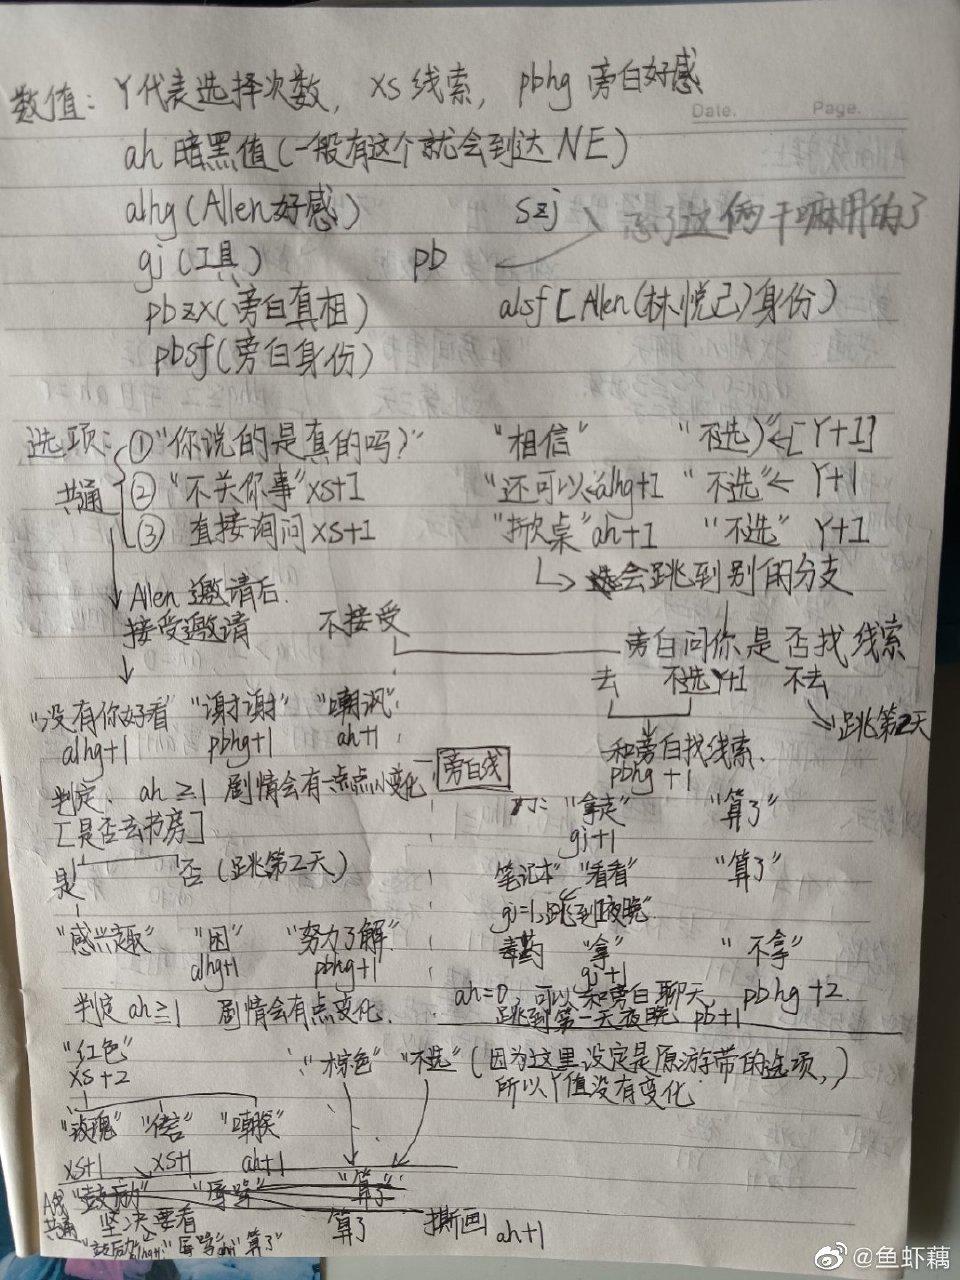 Date. Page.
数值: Y代表选择次数, xs 线索, pbhg 旁白好感
ah 暗黑值(一般有这个就会到达NE)
alhg(Allen好感) szj 忘了这俩干嘛用的了
gj(工具) pb
pbzx(旁白真相) alsf[Allen(林悦己)身份)
pbsf(旁白身份)
选项: ①"你说的是真的吗?" "相信" "不选"←[Y+1]
共通 ② "不关你事"xs+1 "还可以"alhg+1 "不选"← Y+1
③ 直接询问xs+1 "掀桌"ah+1 "不选" Y+1
会跳到别的分支
Allen邀请后.
接受邀请 不接受 旁白问你是否找线索
去 不选Y+1 不去
"没有你好看" "谢谢" "嘲讽" 跳第2天
alhg+1 pbhg+1 ah+1 和旁白找线索.
pbhg+1
判定. ah≥1 剧情会有一点点小变化 旁白线
[是否去书房] "拿走" "算了"
gj+1
是 否(跳第2天) 笔记本"看看" "算了"
gj=1,跳到1夜晚
"感兴趣" "困" "努力了解" 毒药 "拿" "不拿"
alhg+1 pbhg+1 gj+1
ah=0,可以和旁白聊天, pbhg+2
判定ah≥1 剧情会有点变化. 跳到第一天夜晚 pb+1
"红色" "棕色" "不选"(因为这里设定是原游带的选项,)
xs+2 所以Y值没有变化
"玫瑰" "嘲笑"
xs+1 xs+1 ah+1
"鼓励" "辱骂" "算了"
共通 坚决要看 算了 撕画 ah+1
"算了"
@鱼虾藕